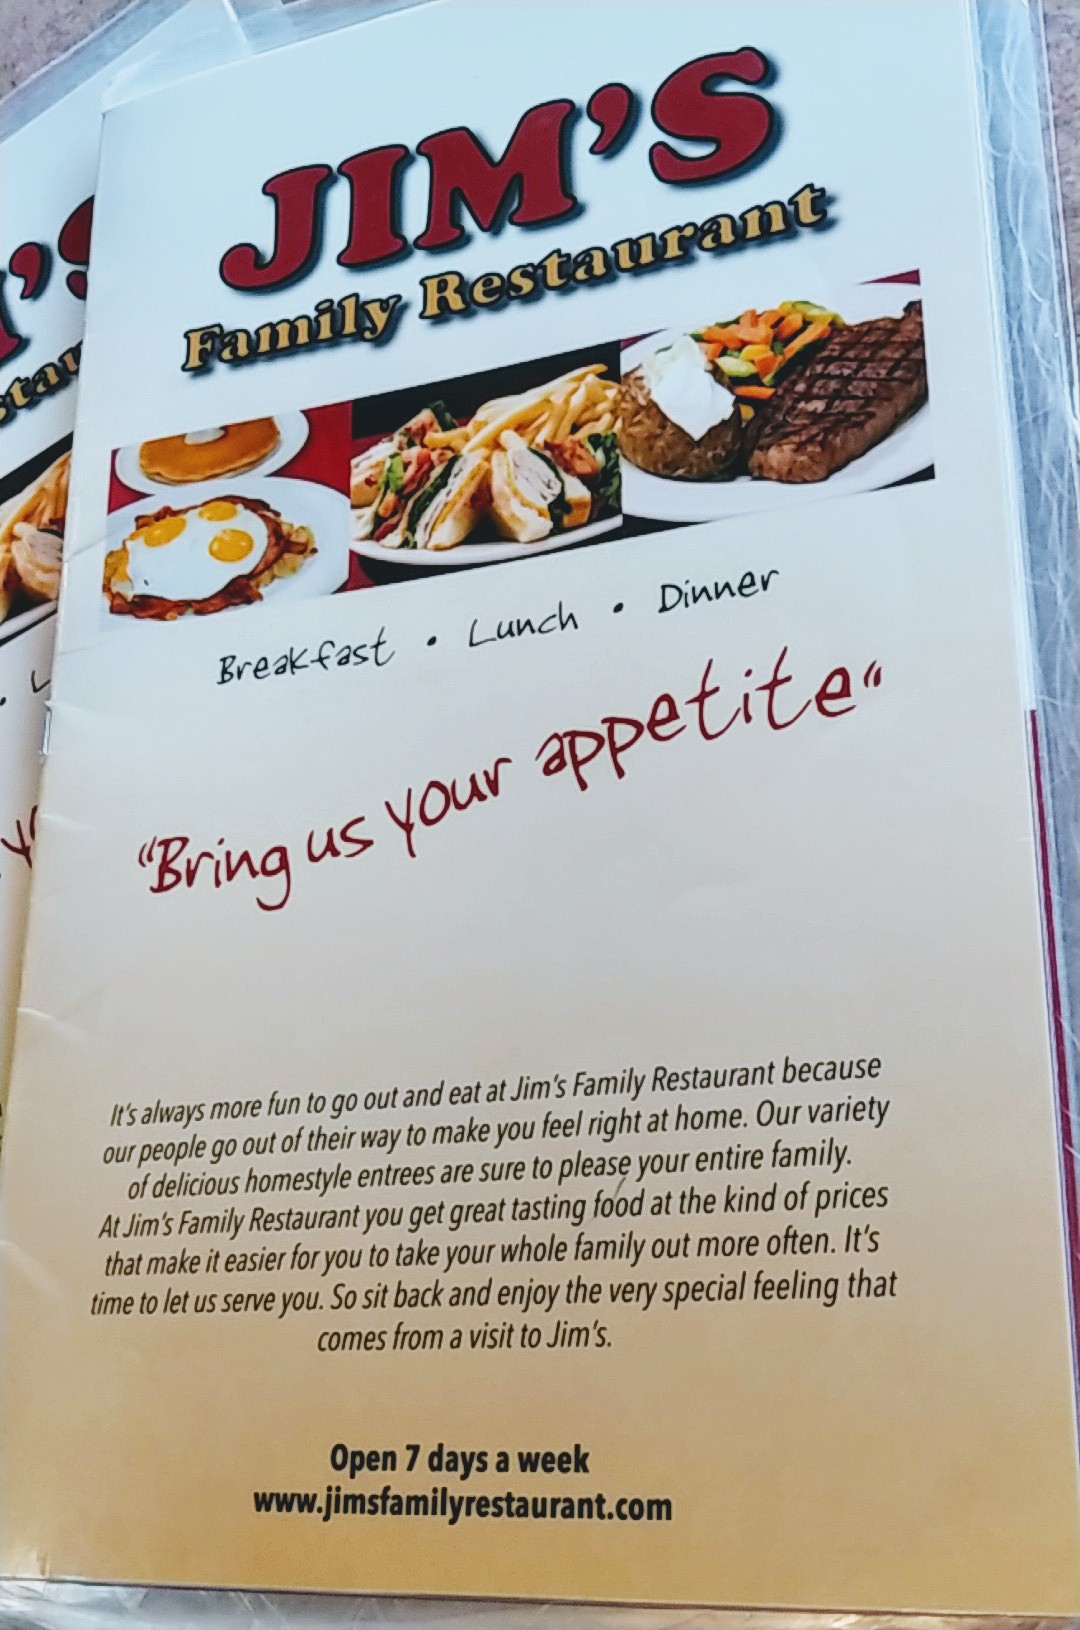 JIM'S
Family Restaurant
Breakfast • Lunch • Dinner
"Bring us your appetite"
It's always more fun to go out and eat at Jim's Family Restaurant because
our people go out of their way to make you feel right at home. Our variety
of delicious homestyle entrees are sure to please your entire family.
At Jim's Family Restaurant you get great tasting food at the kind of prices
that make it easier for you to take your whole family out more often. It's
time to let us serve you. So sit back and enjoy the very special feeling that
comes from a visit to Jim's.
Open 7 days a week
www.jimsfamilyrestaurant.com